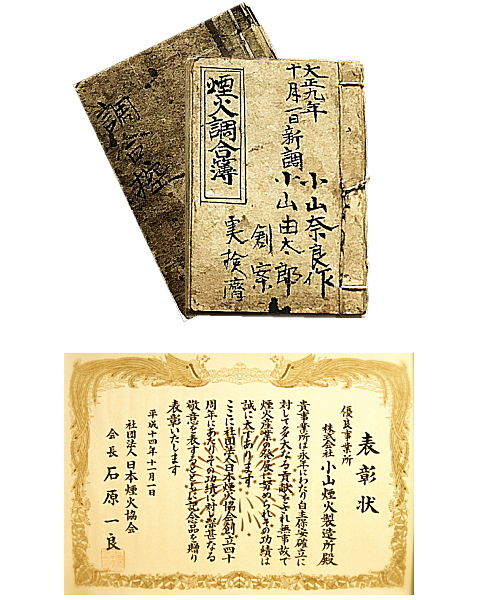 調合控
煙火調合簿
大正九年
十月一日新調
小山奈良作
小山由太郎
創案
実検済
表彰状
優良事業所
株式会社 小山煙火製造所殿
貴事業所は永年にわたり自主保安確立に
対して多大なる貢献をされ無事故で
煙火産業の発展に努められその功績は
誠に大であります
ここに社団法人日本煙火協会創立四十
周年にあたりその功績に対し深甚なる
敬意を表するとともに記念品を贈り
表彰いたします
平成十四年十一月一日
社団法人 日本煙火協会
会長 石原一良